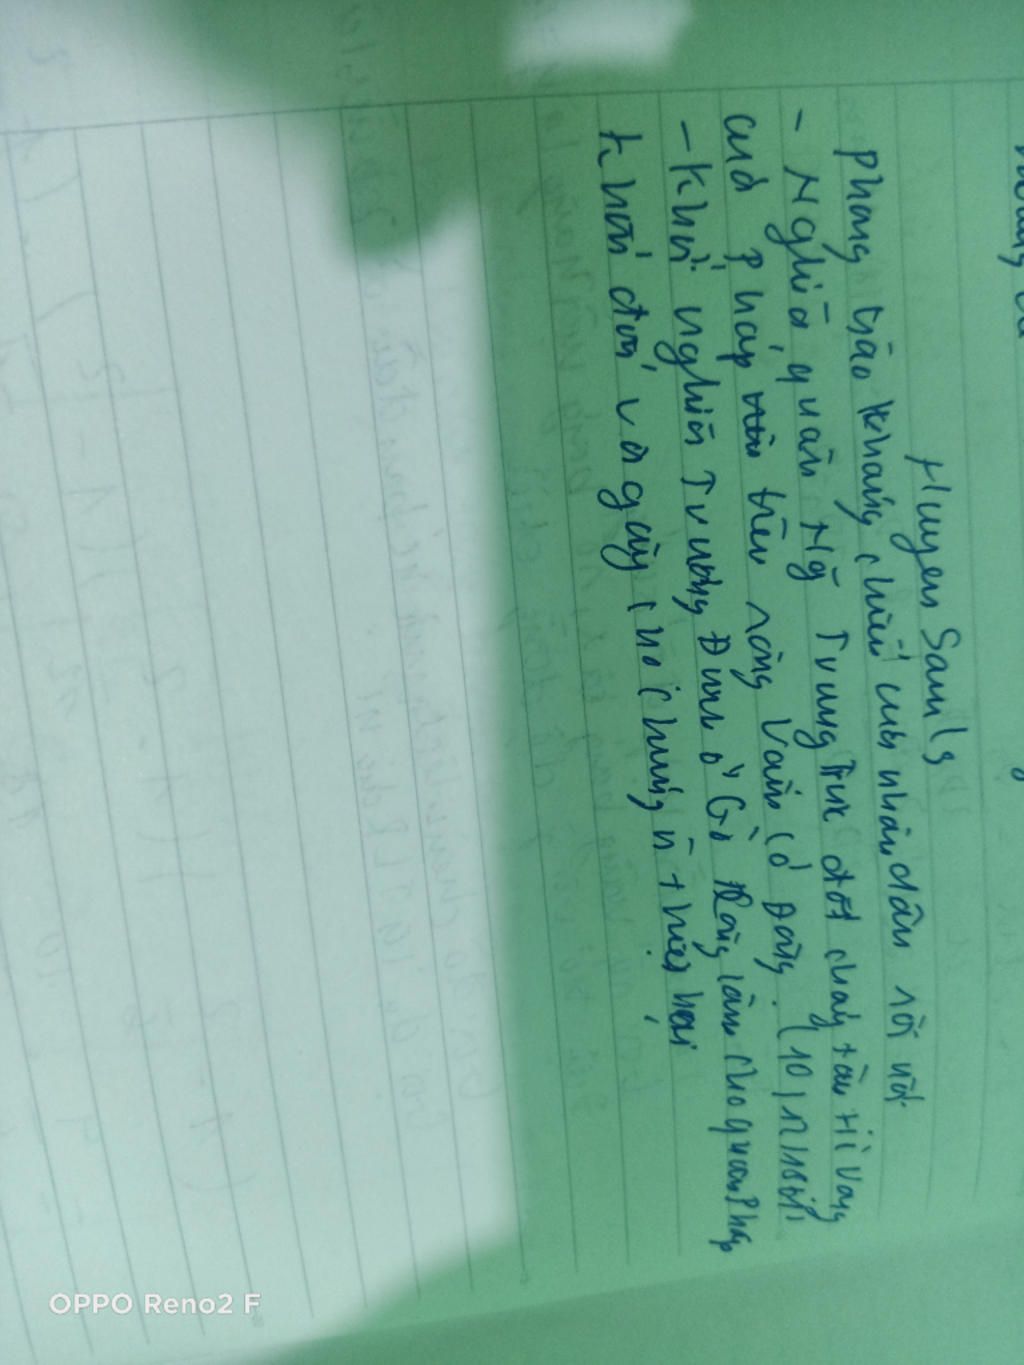 Huyen Sam Ly
Phong trào kháng chiến của nhân dân sôi nổi
- Nghĩa quân Ng Trung Trực đốt cháy tàu Hi Vọng
của Pháp trên sông Vàm Cỏ Đông. (10/12/1861)
- Khởi nghĩa Trương Định ở Gò Công làm cho quân Pháp
khốn đốn và gây cho chúng thiệt hại
OPPO Reno2 F